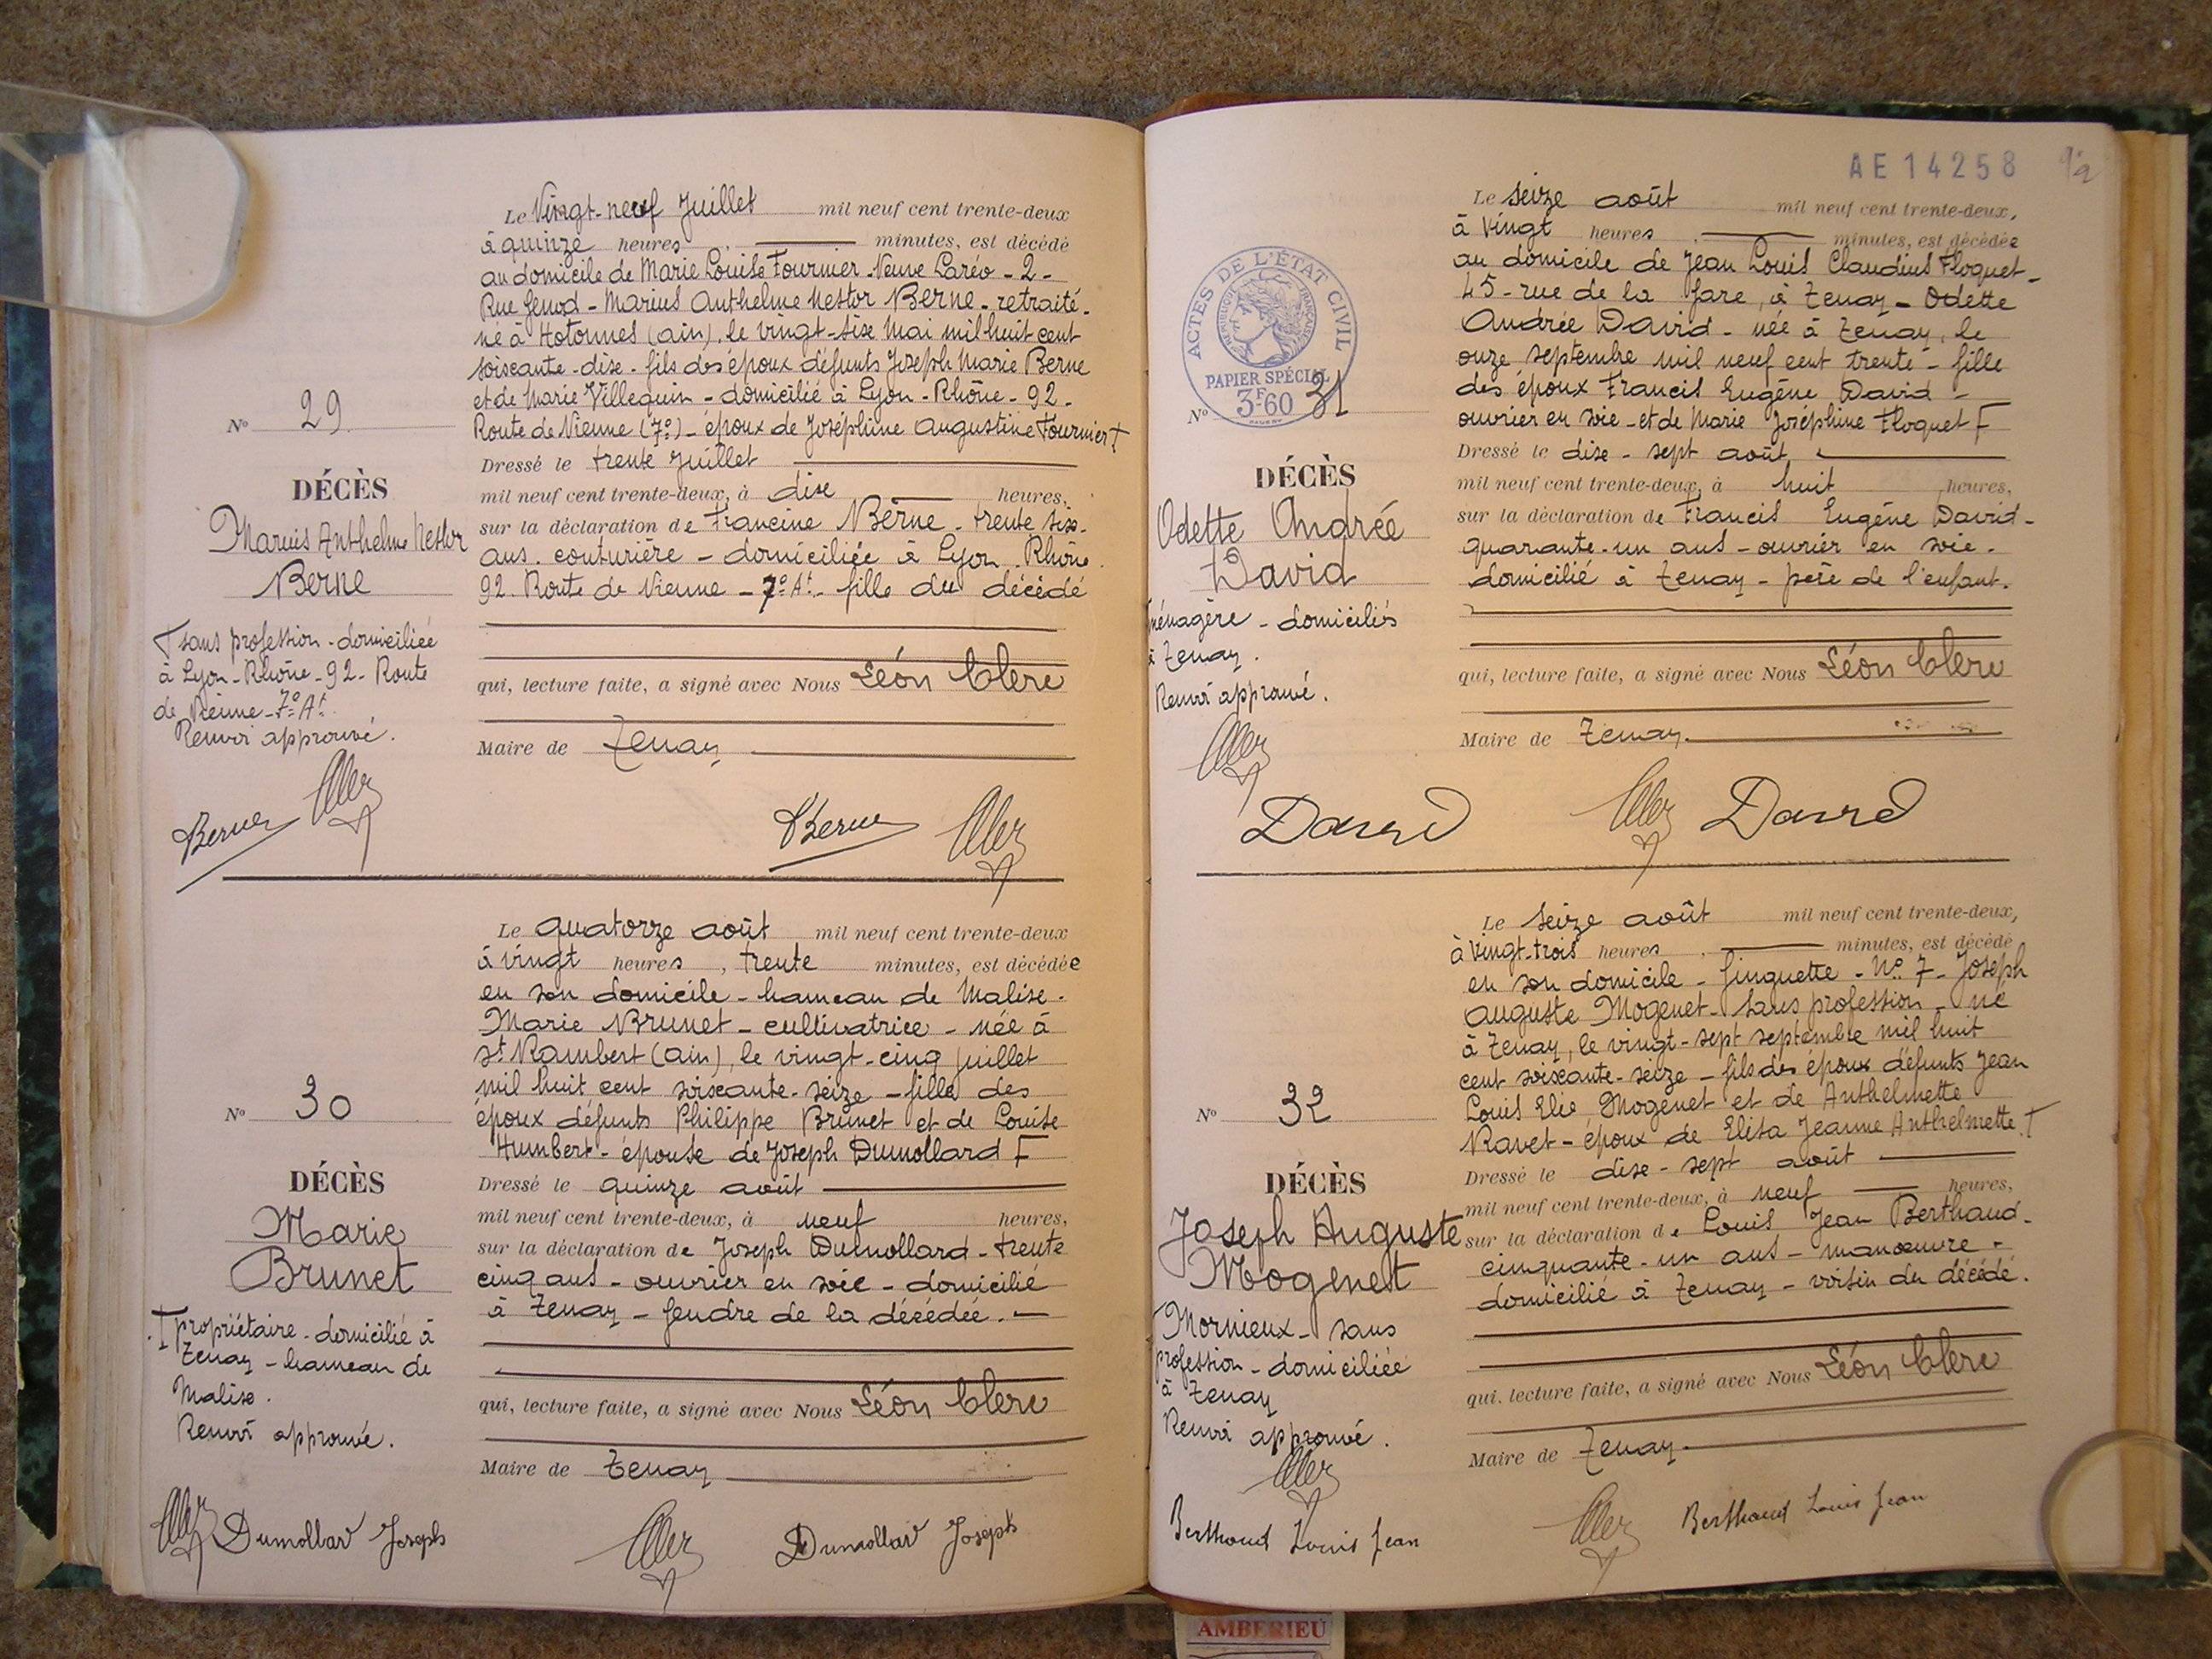 Le Vingt-neuf Juillet mil neuf cent trente-deux
à quinze heures, minutes, est décédé
au domicile de Marie Louise Fournier - Veuve Laréo - 2 -
Rue Genod - Marius Anthelme Nestor Berne - retraité -
né à Hotonnes (ain), le vingt-six Mai mil huit cent
soixante-dix - fils des époux défunts Joseph Marie Berne
et de Marie Villequin - domicilié à Lyon - Rhône - 92 -
N° 29
Route de Vienne (7°) - époux de Joséphine Augustine Fournier †
Dressé le trente Juillet
DÉCÈS
mil neuf cent trente-deux, à dix heures,
Marius Anthelme Nestor
Berne
sur la déclaration de Francine Berne - trente six -
ans - couturière - domiciliée à Lyon - Rhône
92. Route de Vienne - 7° At - fille du décédé
† sans profession - domiciliée
à Lyon - Rhône - 92 - Route
de Vienne - 7° At.
Renvoi approuvé.
qui, lecture faite, a signé avec Nous Léon Clerc
Maire de Tenay
Berne
Berne
Le quatorze août mil neuf cent trente-deux
à vingt heures, trente minutes, est décédée
en son domicile - hameau de Malix -
Marie Brunet - cultivatrice - née à
St Rambert (ain), le vingt-cinq juillet
mil huit cent soixante-seize - fille des
N° 30
époux défunts Philippe Brunet et de Louise
Humbert - épouse de Joseph Dumollard †
DÉCÈS
Dressé le quinze août
Marie
Brunet
mil neuf cent trente-deux, à neuf heures,
sur la déclaration de Joseph Dumollard - trente
cinq ans - ouvrier en soie - domicilié
à Tenay - gendre de la décédée. -
† propriétaire - domicilié à
Tenay - hameau de
Malix.
Renvoi approuvé.
qui, lecture faite, a signé avec Nous Léon Clerc
Maire de Tenay
Dumollar Joseph
Dumollar Joseph
AE 14258
Le seize août mil neuf cent trente-deux,
à vingt heures, minutes, est décédée
au domicile de Jean Louis Claudius Floquet -
45 - rue de la gare, à Tenay - Odette
Andrée David - née à Tenay, le
onze septembre mil neuf cent trente - fille
des époux Francis Eugène David -
ouvrier en soie - et de Marie Joséphine Floquet †
ACTES DE L'ÉTAT CIVIL
RÉPUBLIQUE FRANÇAISE
PAPIER SPÉCIAL
3F60
N° 31
Dressé le dix-sept août
DÉCÈS
mil neuf cent trente-deux, à huit heures,
Odette Andrée
David
sur la déclaration de Francis Eugène David -
quarante-un ans - ouvrier en soie -
domicilié à Tenay - père de l'enfant.
ménagère - domiciliés
à Tenay.
Renvoi approuvé.
qui, lecture faite, a signé avec Nous Léon Clerc
Maire de Tenay.
David
David
Le seize août mil neuf cent trente-deux,
à vingt-trois heures, minutes, est décédé
en son domicile - Ginguette - N° 7 - Joseph
Auguste Mogenet - sans profession - né
à Tenay, le vingt-sept septembre mil huit
cent soixante-seize - fils des époux défunts Jean
N° 32
Louis Elie Mogenet et de Anthelmette
Ravet - époux de Elisa Jeanne Anthelmette †
DÉCÈS
Dressé le dix-sept août
mil neuf cent trente-deux, à neuf heures,
Joseph Auguste
Mogenet
sur la déclaration de Louis Jean Berthaud -
cinquante-un ans - manœuvre -
domicilié à Tenay - voisin du décédé.
† Mornieux - sans
profession - domiciliée
à Tenay
Renvoi approuvé.
qui, lecture faite, a signé avec Nous Léon Clerc
Maire de Tenay.
Berthoud Louis Jean
Berthoud Louis Jean
AMBERIEU